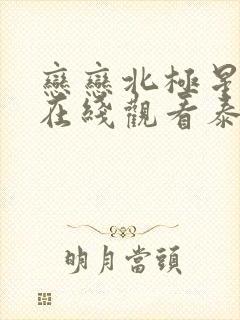 戀戀北極星
在綫觀看泰
明月當頭